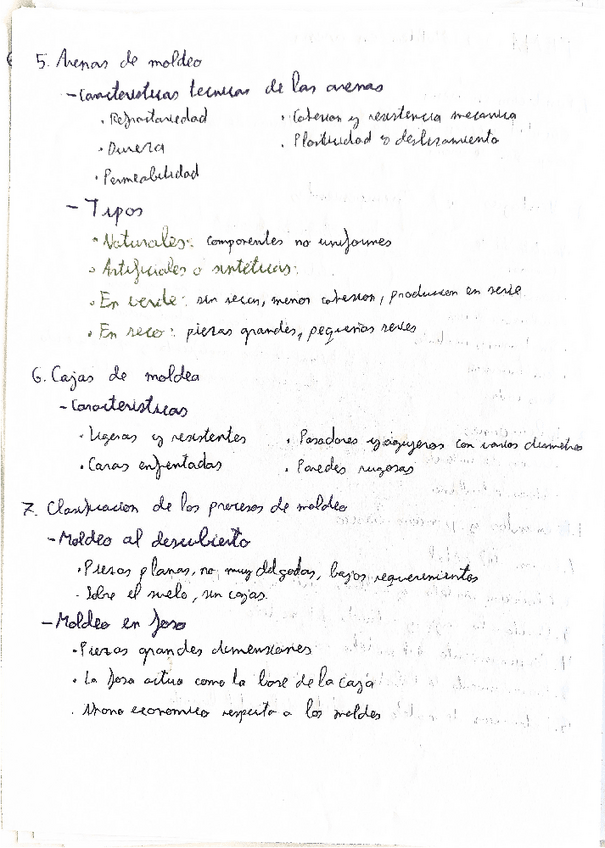 5. Arenas de moldeo
- Caracteristicas tecnicas de las arenas
· Refractariedad
· Cohesion y resistencia mecanica
· Dureza
· Plasticidad y deslizamiento
· Permeabilidad
- Tipos
· Naturales: componentes no uniformes
· Artificiales o sintéticas:
· En verde: sin secar, menos cohesion, produccion en serie
· En seco: piezas grandes, pequeñas series
6. Cajas de moldeo
- Caracteristicas
· Ligeras y resistentes
· Pasadores y agujeros con varios diametros
· Caras enfrentadas
· Paredes rugosas
7. Clasificacion de los procesos de moldeo
- Moldeo al descubierto
· Piezas planas, no muy delgadas, bajos requerimientos
· Sobre el suelo, sin cajas.
- Moldeo en fosa
· Piezas grandes dimensiones
· La fosa actua como la base de la caja
· Ahorro economico respecto a los moldes